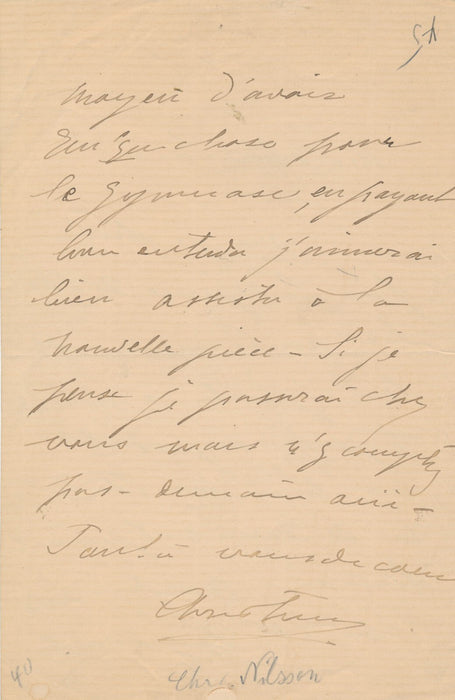 54
moyen d'avoir
quelque chose pour
le Gymnase, en payant
bien entendu j'aimerai
bien assister à la
nouvelle pièce – Si je
peux je passerai chez
vous mais n'y comptez
pas – demain
Tout à vous de coeur
Christine
Chr. Nilsson
40